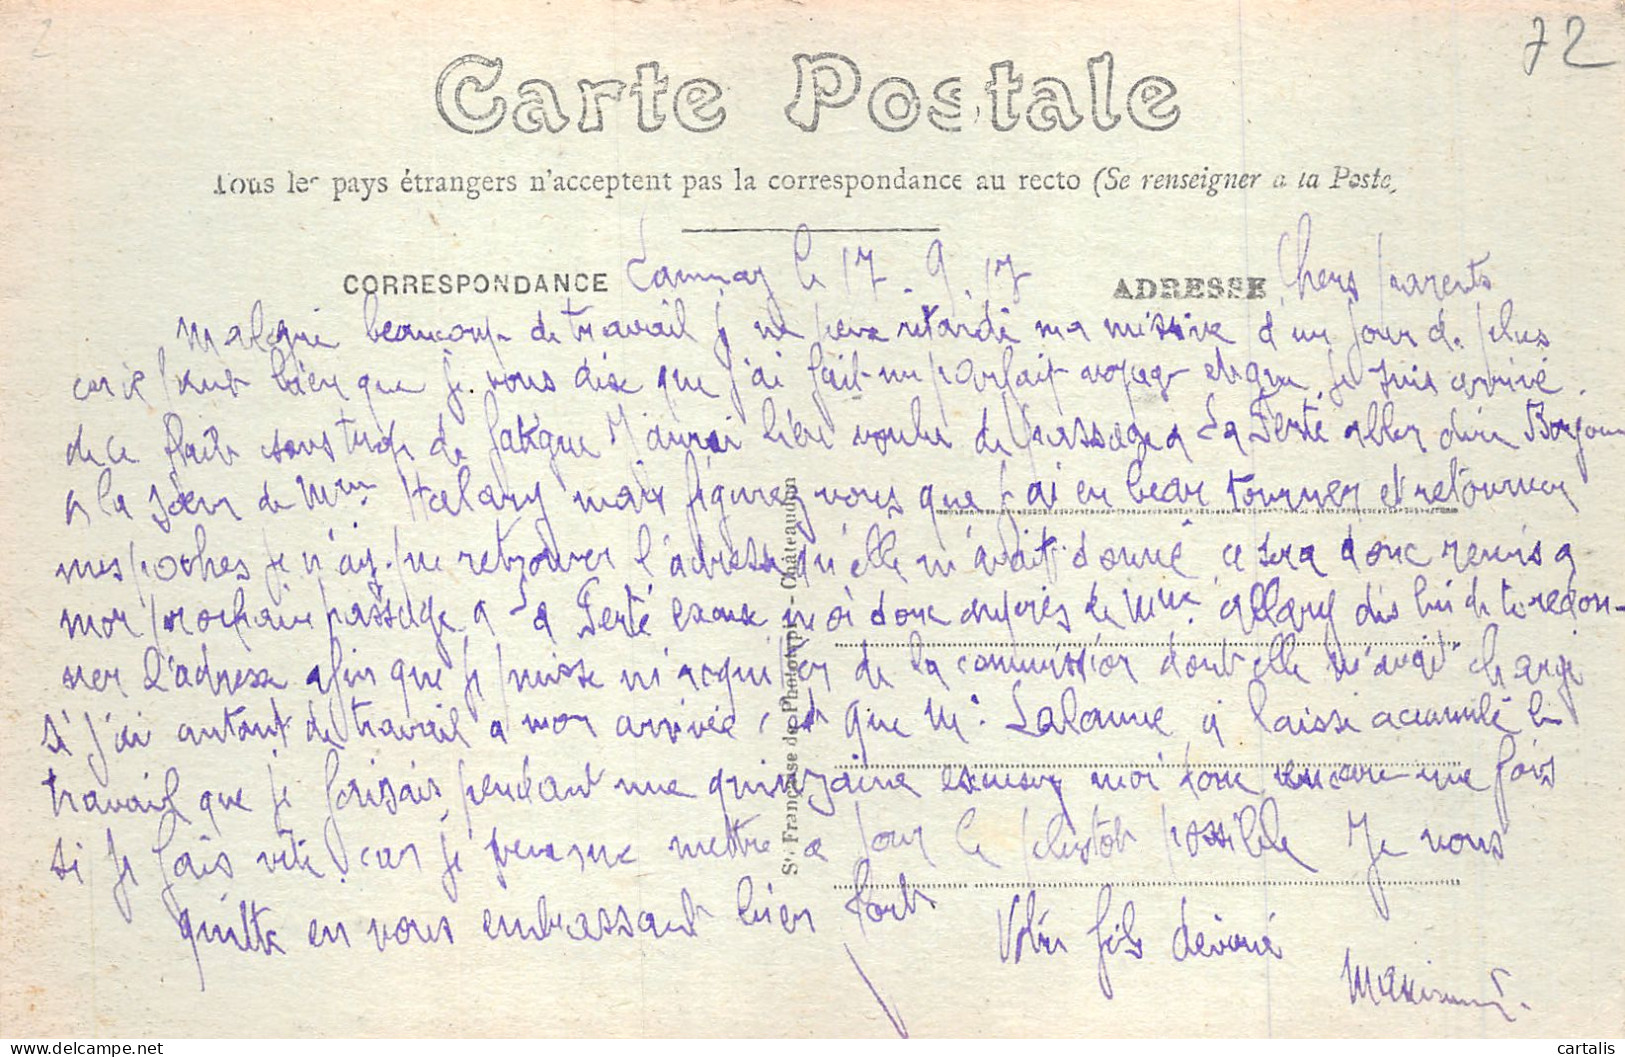 72
Carte Postale
Tous les pays étrangers n'acceptent pas la correspondance au recto (Se renseigner a la Poste)
CORRESPONDANCE le 17.9.17 ADRESSE Chers parents
Malgré beaucoup de travail je ne peux retarder ma missive d'un jour de plus
car il faut bien que je vous dise que j'ai fait un parfait voyage et que je suis arrivé
de ce fait sans trop de fatigue J'aurai bien voulu de passage a La Ferté aller dire Bonjour
a la Soeur de Mme mais figurez vous que j'ai eu beau tourner et retourner
mes poches je n'ai pu retrouver l'adresse qu'elle m'avait donné ce sera donc remis a
mon prochain passage a La Ferté excuse moi donc auprès de Mme allary dis lui de te redon-
ner l'adresse afin que je puisse m'acquiter de la commission dont elle m'avait chargé
Si j'ai autant de travail a mon arrivée, c'est que Mr. Lalanne a laissé accumulé le
travail que je faisais pendant une quinzaine excusez moi donc encore une fois
si je fais vite car je veux me mettre a jour le plustot possible Je vous
quitte en vous embrassant bien fort Votre fils dévoué
Sté Française de Phototypie - Châteaudun
cartalis